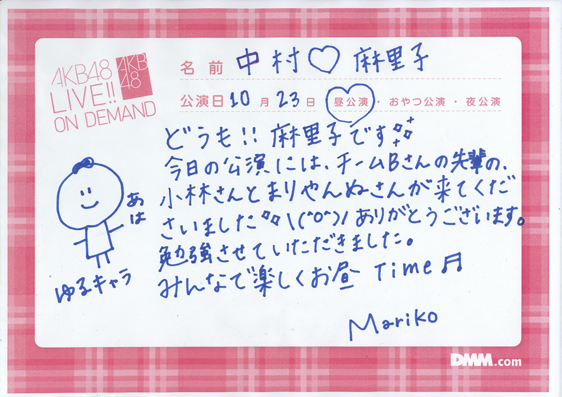 AKB48
LIVE!!
ON DEMAND
AKB
48
名前 中村♡麻里子
公演日 10月23日 昼公演・おやつ公演・夜公演
どうも!! 麻里子です
今日の公演には、チームBさんの先輩の、
小林さんとまりやんぬさんが来てくだ
さいました \(^o^)/ ありがとうございます。
勉強させていただきました。
みんなで楽しくお昼 Time♬
あは
ゆるキャラ
Mariko
DMM.com